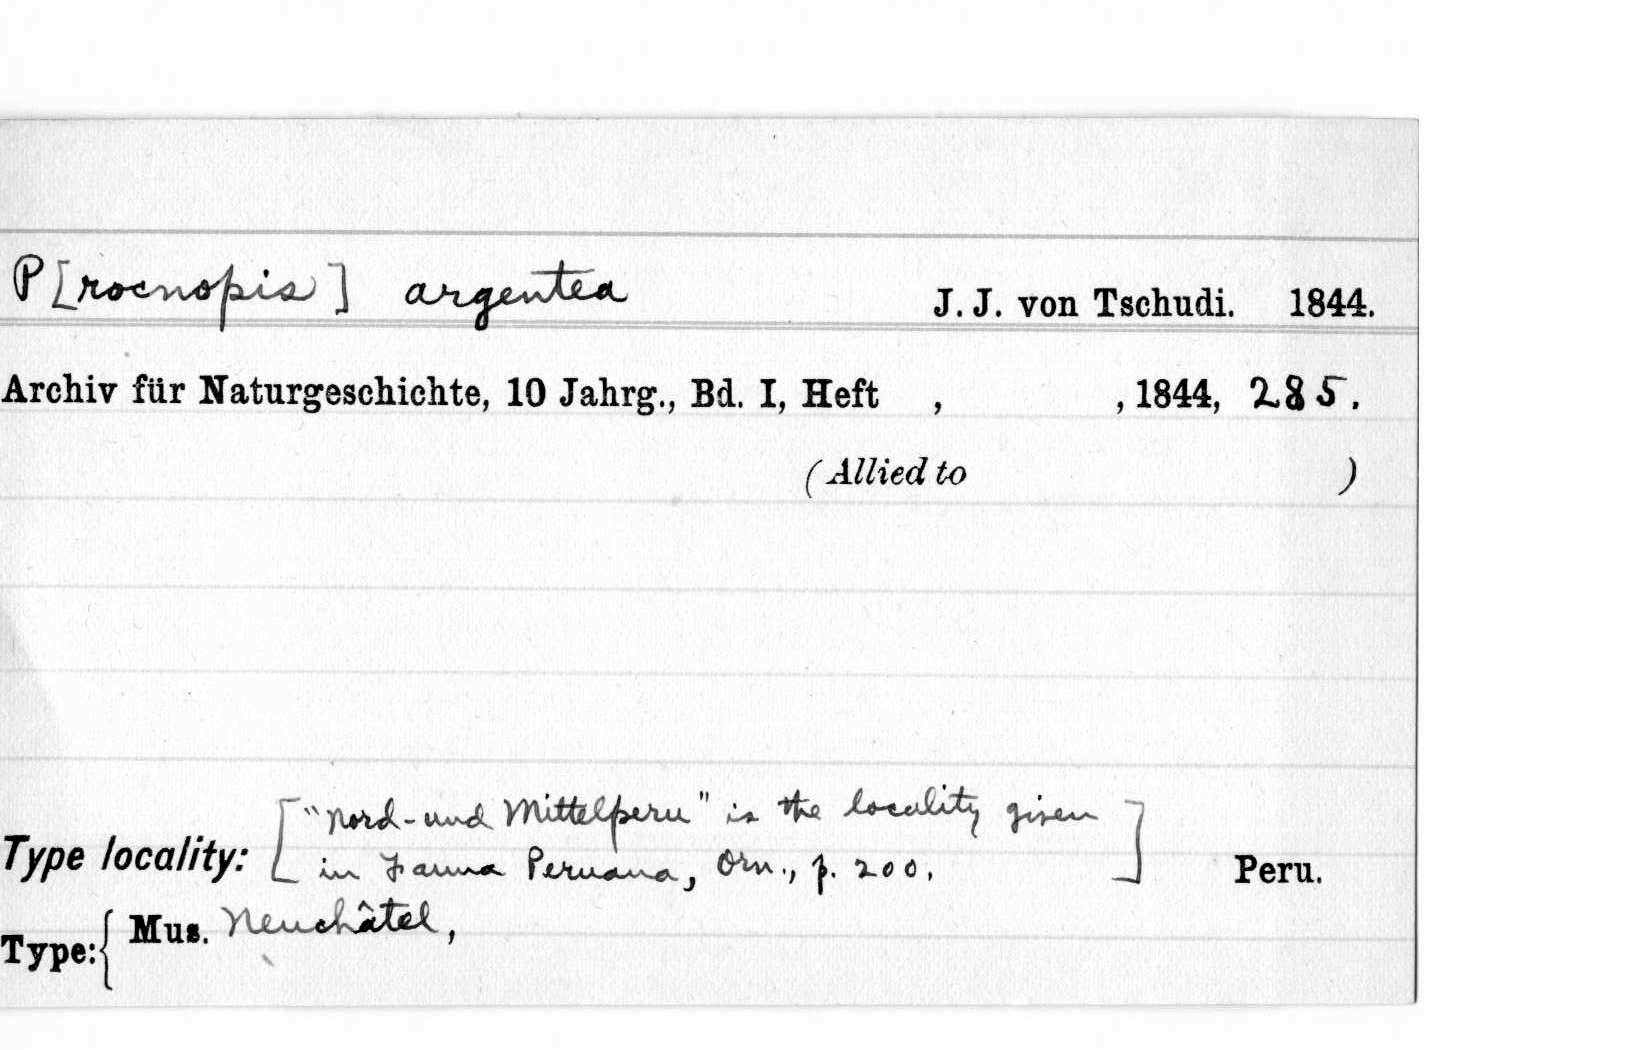 P[rocnopis] argentea J. J. von Tschudi. 1844.
Archiv für Naturgeschichte, 10 Jahrg., Bd. I, Heft , , 1844, 285.
(Allied to )
["Nord- und Mittelperu" is the locality given
Type locality: in Fauna Peruana, Orn., p. 200.] Peru.
Type:{ Mus. Neuchâtel,